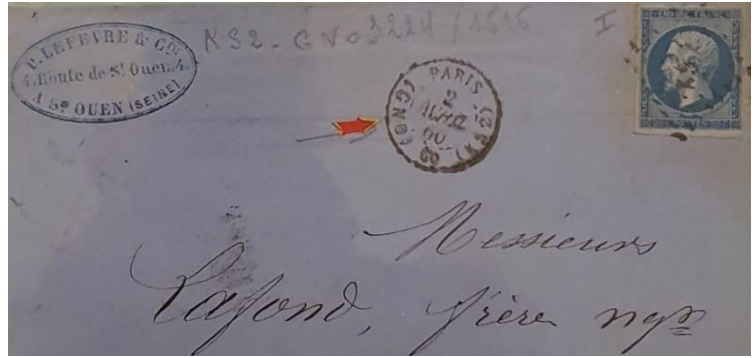 P. LEFEVRE & Cie
4, Route de St Ouen, 4
A St OUEN (SEINE)
KS2 - GNo 3224 / 1515
I
PARIS
2
AVRIL
60
(KS2)
KS2
Messieurs
Lafond, frère ngts